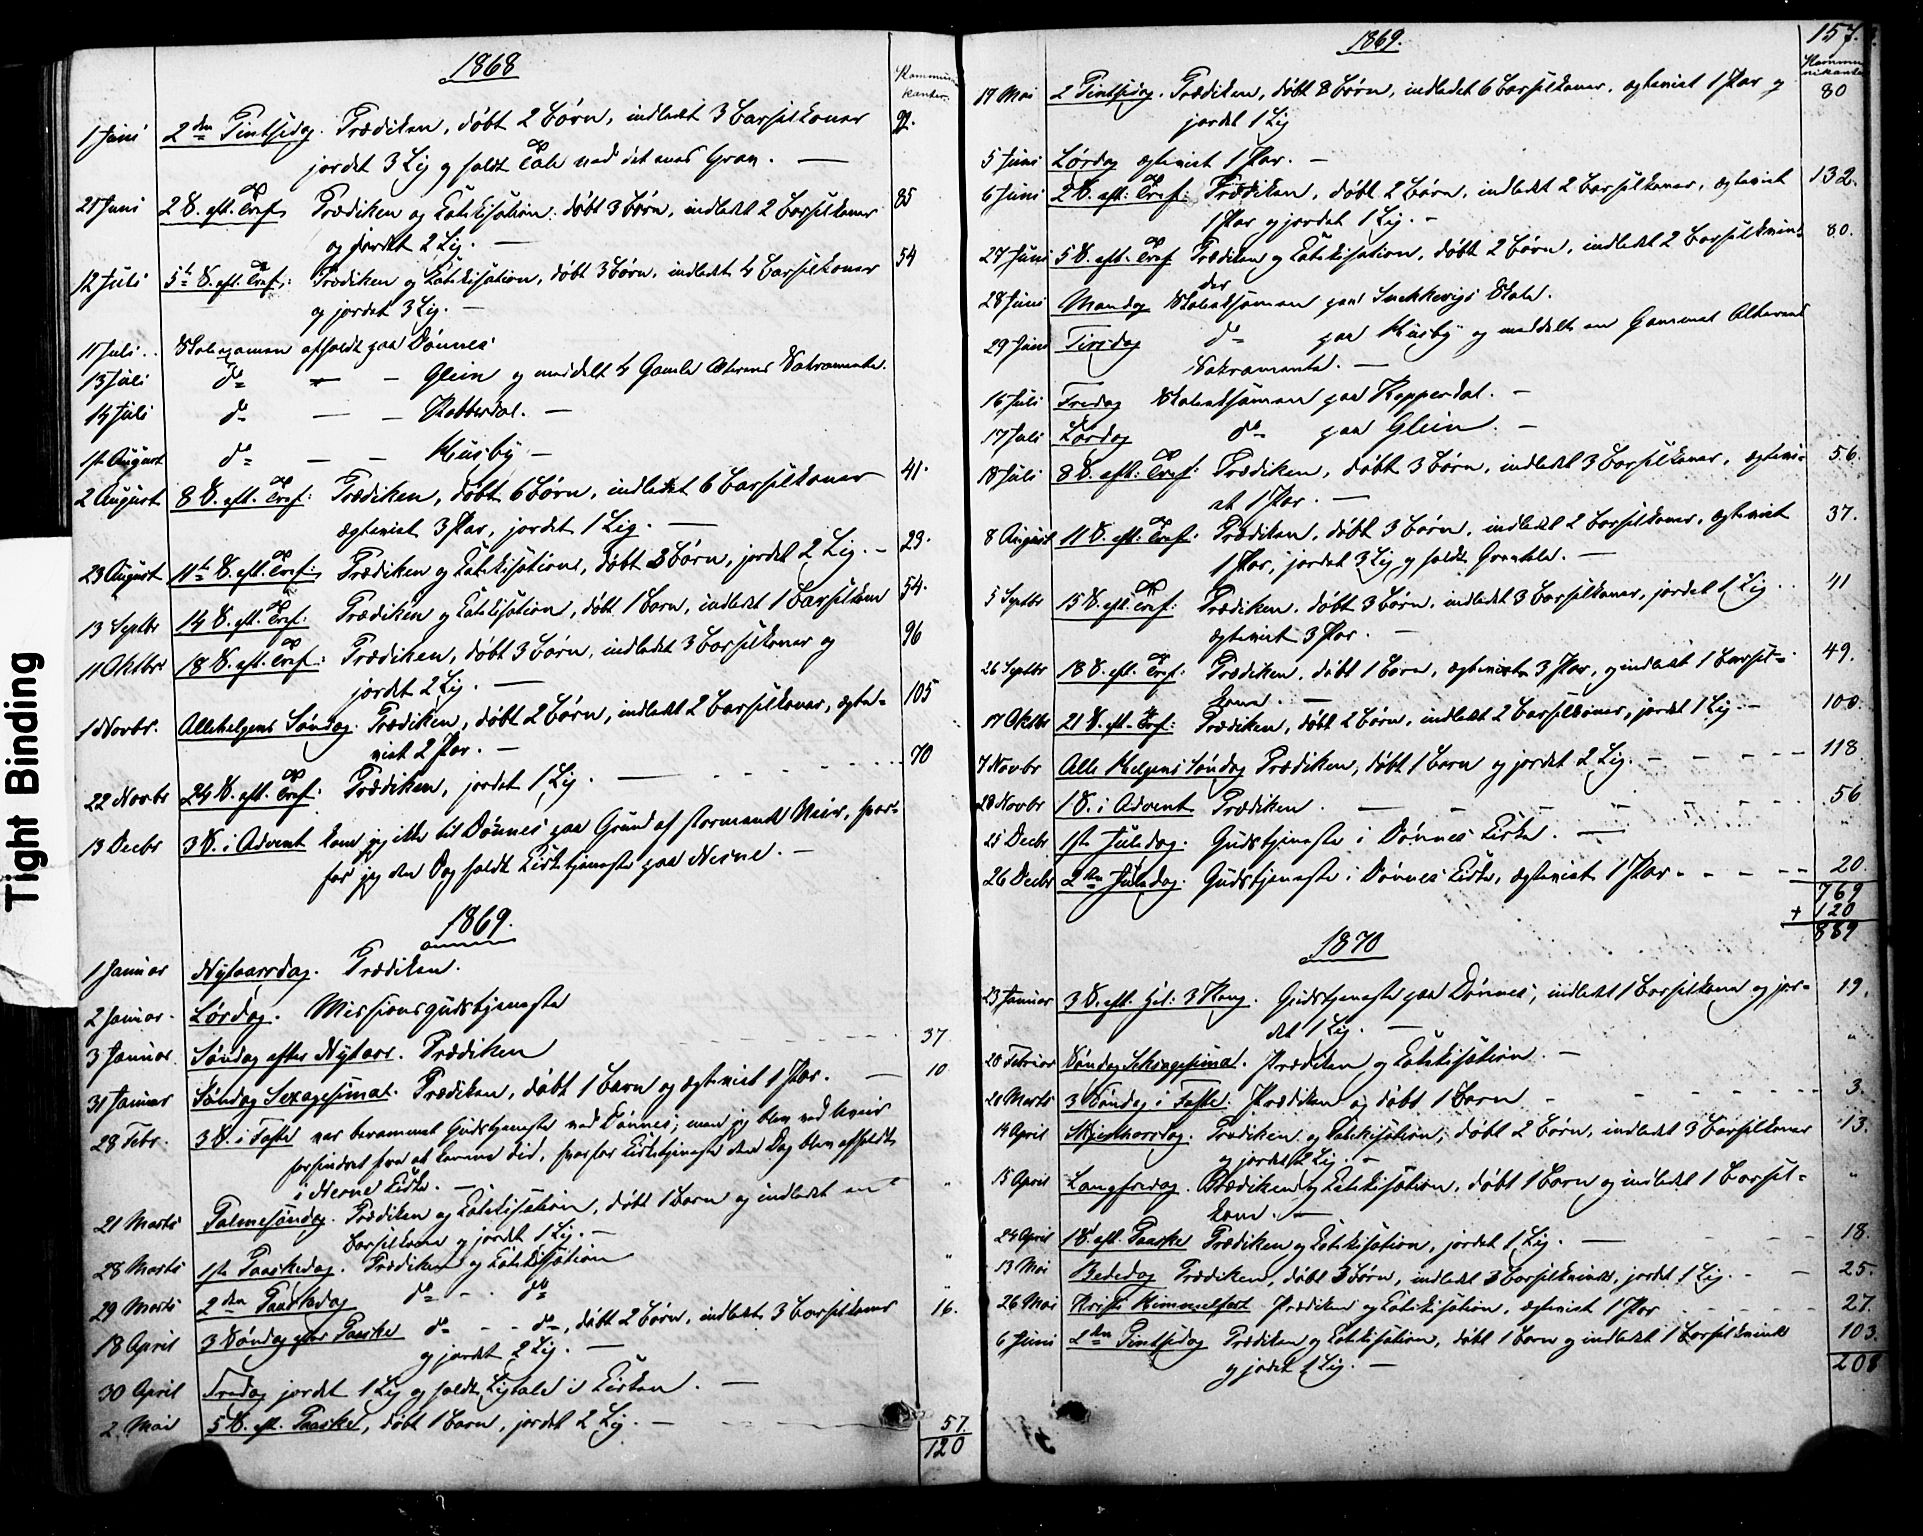 Tight Binding
1868
Kommuni-
kanter
1 Juni 2den Pintsedag. Prædiken, døbt 2 Børn, indledet 3 Barselkoner 92.
jordet 3 Lig og holdt Tale ved det enes Grav. —
21 Juni 2 S. eft. Tref. Prædiken og Katekisation: døbt 3 Børn, indledet 2 Barselkoner 85
og jordet 2 Lig. —
12 Juli 5te S. eft. Tref: Prædiken og Katekisation, døbt 3 Børn, indledet 4 Barselkoner 54
og jordet 3 Lig. —
11 Juli .. Skoleexamen afholdt paa Dønnes
13 Juli do — — Glein og meddelt 4 Gamle Alterens Sakramente.
14 Juli do — — Kobberdal. —
1ste August do — — Husby —
2 August 8 S. eft. Tref: Prædiken, døbt 6 Børn, indledet 6 Barselkoner 41.
ægteviet 3 Par, jordet 1 Lig. —
23 August 11te S. eft. Tref: Prædiken og Katekisation, døbt 3 Børn, jordet 2 Lig. — 23.
13 Septbr 14 S. eft. Tref: Prædiken og Katekisation, døbt 1 Barn, indledet 1 Barselkone 54.
11 Oktbr 18 S. eft. Tref: Prædiken, døbt 3 Børn, indledet 3 Barselkoner og 96
jordet 2 Lig. —
1 Novbr. Allehelgens Søndag. Prædiken, døbt 2 Børn, indledet 2 Barselkoner, ægte- 105
viet 2 Par. —
22 Novbr 24 S. eft. Tref: Prædiken, jordet 1 Lig. — 70
13 Decbr 3 S. i Advent kom jeg ikke til Dønnes paa Grund af stormende Veir, hvor-
for jeg den Dag holdt Kirketjeneste paa Nesne. —
1869.
1 Januar Nytaarsdag. Prædiken.
2 Januar. Lørdag. Missionsgudstjeneste
3 Januar Søndag efter Nytaar. Prædiken 37
31 Januar Søndag Sexagesimat. Prædiken, døbt 1 Barn og ægteviet 1 Par. — 10
28 Febr. 3 S. i Faste var berammet Gudstjeneste ved Dønnes; men jeg blev ved Uveir
forhindret fra at komme did, hvorfor Kirketjeneste den Dag blev afholdt
i Nesne Kirke. —
21 Marts Palmesøndag. Prædiken og Katekisation, døbt 1 Barn og indledet en "
Barselkone og jordet 1 Lig. —
28 Marts 1ste Paaskedag. Prædiken og Katekisation "
29 Marts 2den Paaskedag do — . do "
18 April 3 Søndag efter Paaske do — — do, døbt 2 Børn, indledet 3 Barselkoner 16.
og jordet 2 Lig. —
30 April Fredag jordet 1 Lig og holdt Ligtale i Kirken. —
2. Mai 5 S. eft. Paaske, døbt 1 Barn, jordet 2 Lig. — 57.
120
1869.
157.
Kommu-
nikanter
17 Mai 2 Pintsedag. Prædiken, døbt 8 Børn, indledet 6 Barselkoner, ægteviet 1 Par og 80
jordet 1 Lig
5 Juni Lørdag ægteviet 1 Par. —
6 Juni 2 S. eft: Tref: Prædiken, døbt 2 Børn, indledet 2 Barselkoner, ægteviet 132.
1 Par og jordet 1 Lig. —
27 Juni 5 S. eft. Tref Prædiken og Katekisation, døbt 2 Børn, indledet 2 Barselkvin- 80.
der
28 Juni Mandag Skoleeksamen paa Snekkevigs Skole.
29 Juni Tirsdag do paa Husby og meddelt en Gammel Alterens
Sakramente. —
16 Juli Fredag Skoleeksamen paa Kopperdal. —
17 Juli Lørdag do paa Glein. —
18 Juli 8 S. eft: Tref: Prædiken, døbt 3 Børn, indledet 3 Barselkoner, ægtevi- 56.
et 1 Par. —
8 August 11 S. eft: Tref: Prædiken, døbt 3 Børn, indledet 2 Barselkoner, ægteviet 37.
1 Par, jordet 3 Lig og holdt Gravtale. —
5 Septbr 15 S. eft. Tref: Prædiken, døbt 3 Børn, indledet 3 Barselkoner, jordet 1 Lig .. 41
ægteviet 3 Par. —
26 Septbr 18 S. eft. Tref: Prædiken, døbt 1 Barn, ægteviet 3 Par, og indledet 1 Barsel- 49.
kone. —
17 Oktbr 21 S. eft. Tref: Prædiken, døbt 2 Børn, indledet 2 Barselkoner, jordet 1 Lig. — 100.
7 Novbr Alle Helgens Søndag Prædiken, døbt 1 Barn og jordet 2 Lig. — — — — 118
28 Novbr 1 S. i Advent Prædiken. — — — 56
25 Decbr 1ste Juledag. Gudstjeneste i Dønnes Kirke. — "
26 Decbr 2den Juledag. Gudstjeneste i Dønnes Kirke, ægteviet 1 Par — — — 20.
769
+ 120
889
1870
23 Januar 3 S. eft. Hel: 3 Kong. Gudstjeneste paa Dønnes; indledet 1 Barselkone og jor- 19.
det 1 Lig. — "
20 Februar Søndag Seksagesimat. Prædiken og Katekisation. —
20 Marts 3 Søndag i Faste. Prædiken og døbt 1 Barn — — — 3.
14 April Skjærtorsdag. Prædiken og Katekisation; døbt 2 Børn, indledet 3 Barselkoner 13.
og jordet 2 Lig. —
15 April Langfredag. Prædiken og Katekisation, døbt 1 Barn og indledet 1 Barsel- "
kone. —
24 April 1 S. eft. Paaske Prædiken og Katekisation, jordet 1 Lig. — — — 18.
13 Mai Bededag Prædiken, døbt 3 Børn, indledet 3 Barselkvinder, jordet 1 Lig. — — 25.
26 Mai Kristi Himmelfart Prædiken og Katekisation, ægteviet 1 Par — — — 27.
6 Juni 2den Pintsedag Prædiken og Katekisation, døbt 1 Barn og indledet 1 Barselkvinde 103.
og jordet 1 Lig. — 208